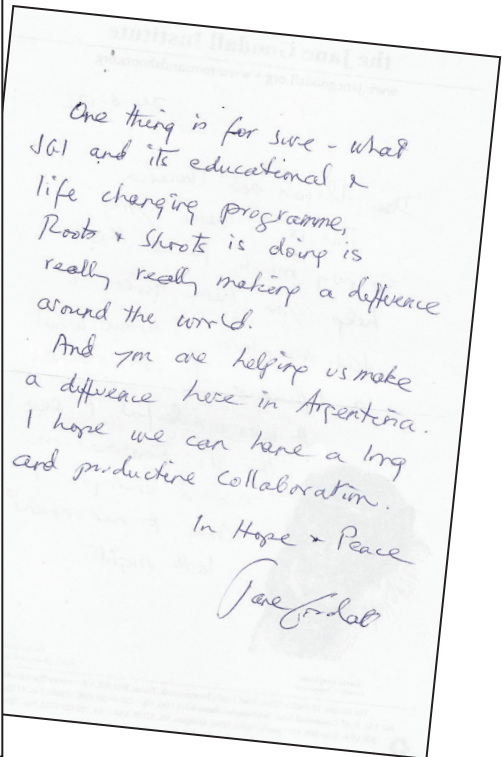 One thing is for sure - what
JGI and its educational &
life changing programme,
Roots & Shoots is doing is
really really making a difference
around the world.
And you are helping us make
a difference here in Argentina.
I hope we can have a long
and productive collaboration.
In Hope & Peace
Jane Goodall